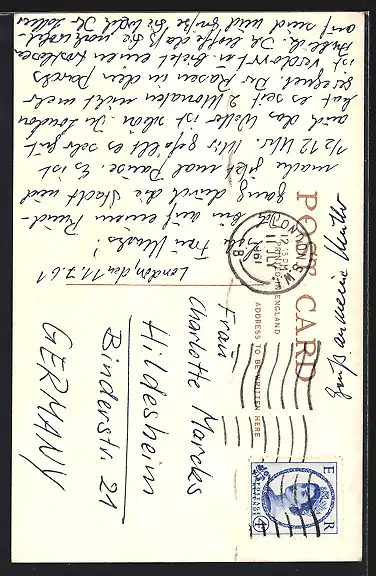 POST CARD
PRINTED IN ENGLAND
ADDRESS TO BE WRITTEN HERE
LONDON S.W.
12 15 PM
11 JLY
1961
B
E R
POSTAGE
REVENUE
4D
London, den 11.7.61
Frau Marcks!
Ich bin auf einem Rund-
gang durch die Stadt und
mache jetzt mal Pause. Es ist
1/2 12 Uhr. Mir gefällt es sehr gut
und das Wetter ist schön. In London
hat es seit 2 Monaten nicht mehr
geregnet. Der Rasen in den Parks
ist verdorrt u. bietet einen trostlosen
Anblick. Ich hoffe daß Sie wohl-
auf sind und grüße Sie
Gruß an meine Mutter
Frau
Charlotte Marcks
Hildesheim
Binderstr. 21
GERMANY